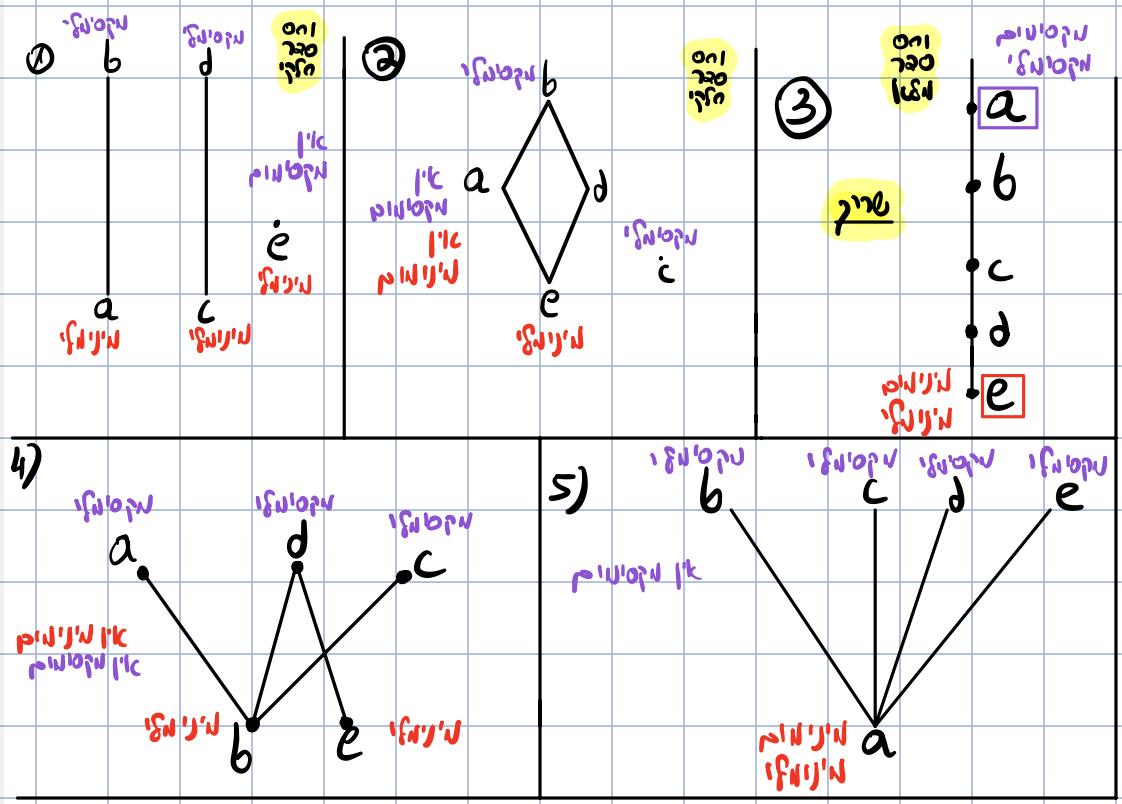 1
מקסימלי
b
מקסימלי
d
יחס
סדר
חלקי
אין
מקסימום
e
מינימלי
a
מינימלי
c
מינימלי
2
מקסימלי
b
יחס
סדר
חלקי
אין
מקסימום
אין
מינימום
a
d
מקסימלי
c
e
מינימלי
3
יחס
סדר
מלא
מקסימום
מקסימלי
a
שרשרת
b
c
d
מינימום
מינימלי
e
4)
מקסימלי
a
מקסימלי
d
מקסימלי
c
אין מינימום
אין מקסימום
מינימלי
b
e
מינימלי
5)
מקסימלי
b
מקסימלי
c
מקסימלי
d
מקסימלי
e
אין מקסימום
מינימום
מינימלי
a